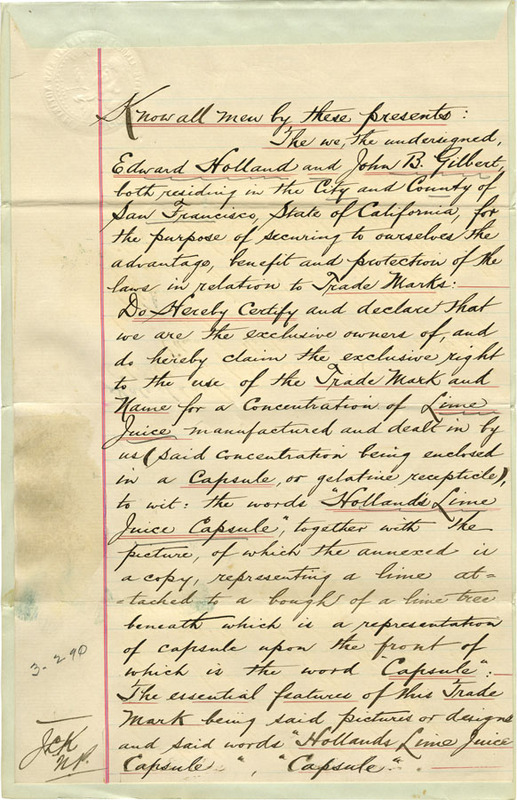 Know all men by these presents:
The we, the undersigned,
Edward Holland and John B. Gilbert,
both residing in the City and County of
San Francisco, State of California, for
the purpose of securing to ourselves the
advantage, benefit and protection of the
laws in relation to Trade Marks:
Do Hereby Certify and declare that
we are the exclusive owners of, and
do hereby claim the exclusive right
to the use of the Trade Mark and
Name for a Concentration of Lime
Juice manufactured and dealt in by
us (said Concentration being enclosed
in a Capsule, or gelatine recepticle),
to wit: the words "Hollands Lime
Juice Capsule", together with the
picture, of which the annexed is
a copy, representing a lime at=
=tached to a bough of a lime tree
beneath which is a representation
of capsule upon the front of
which is the word "Capsule":
The essential features of this Trade
Mark being said pictures or designs
and said words "Hollands Lime Juice
Capsule", "Capsule".
3-2 90
N.P.